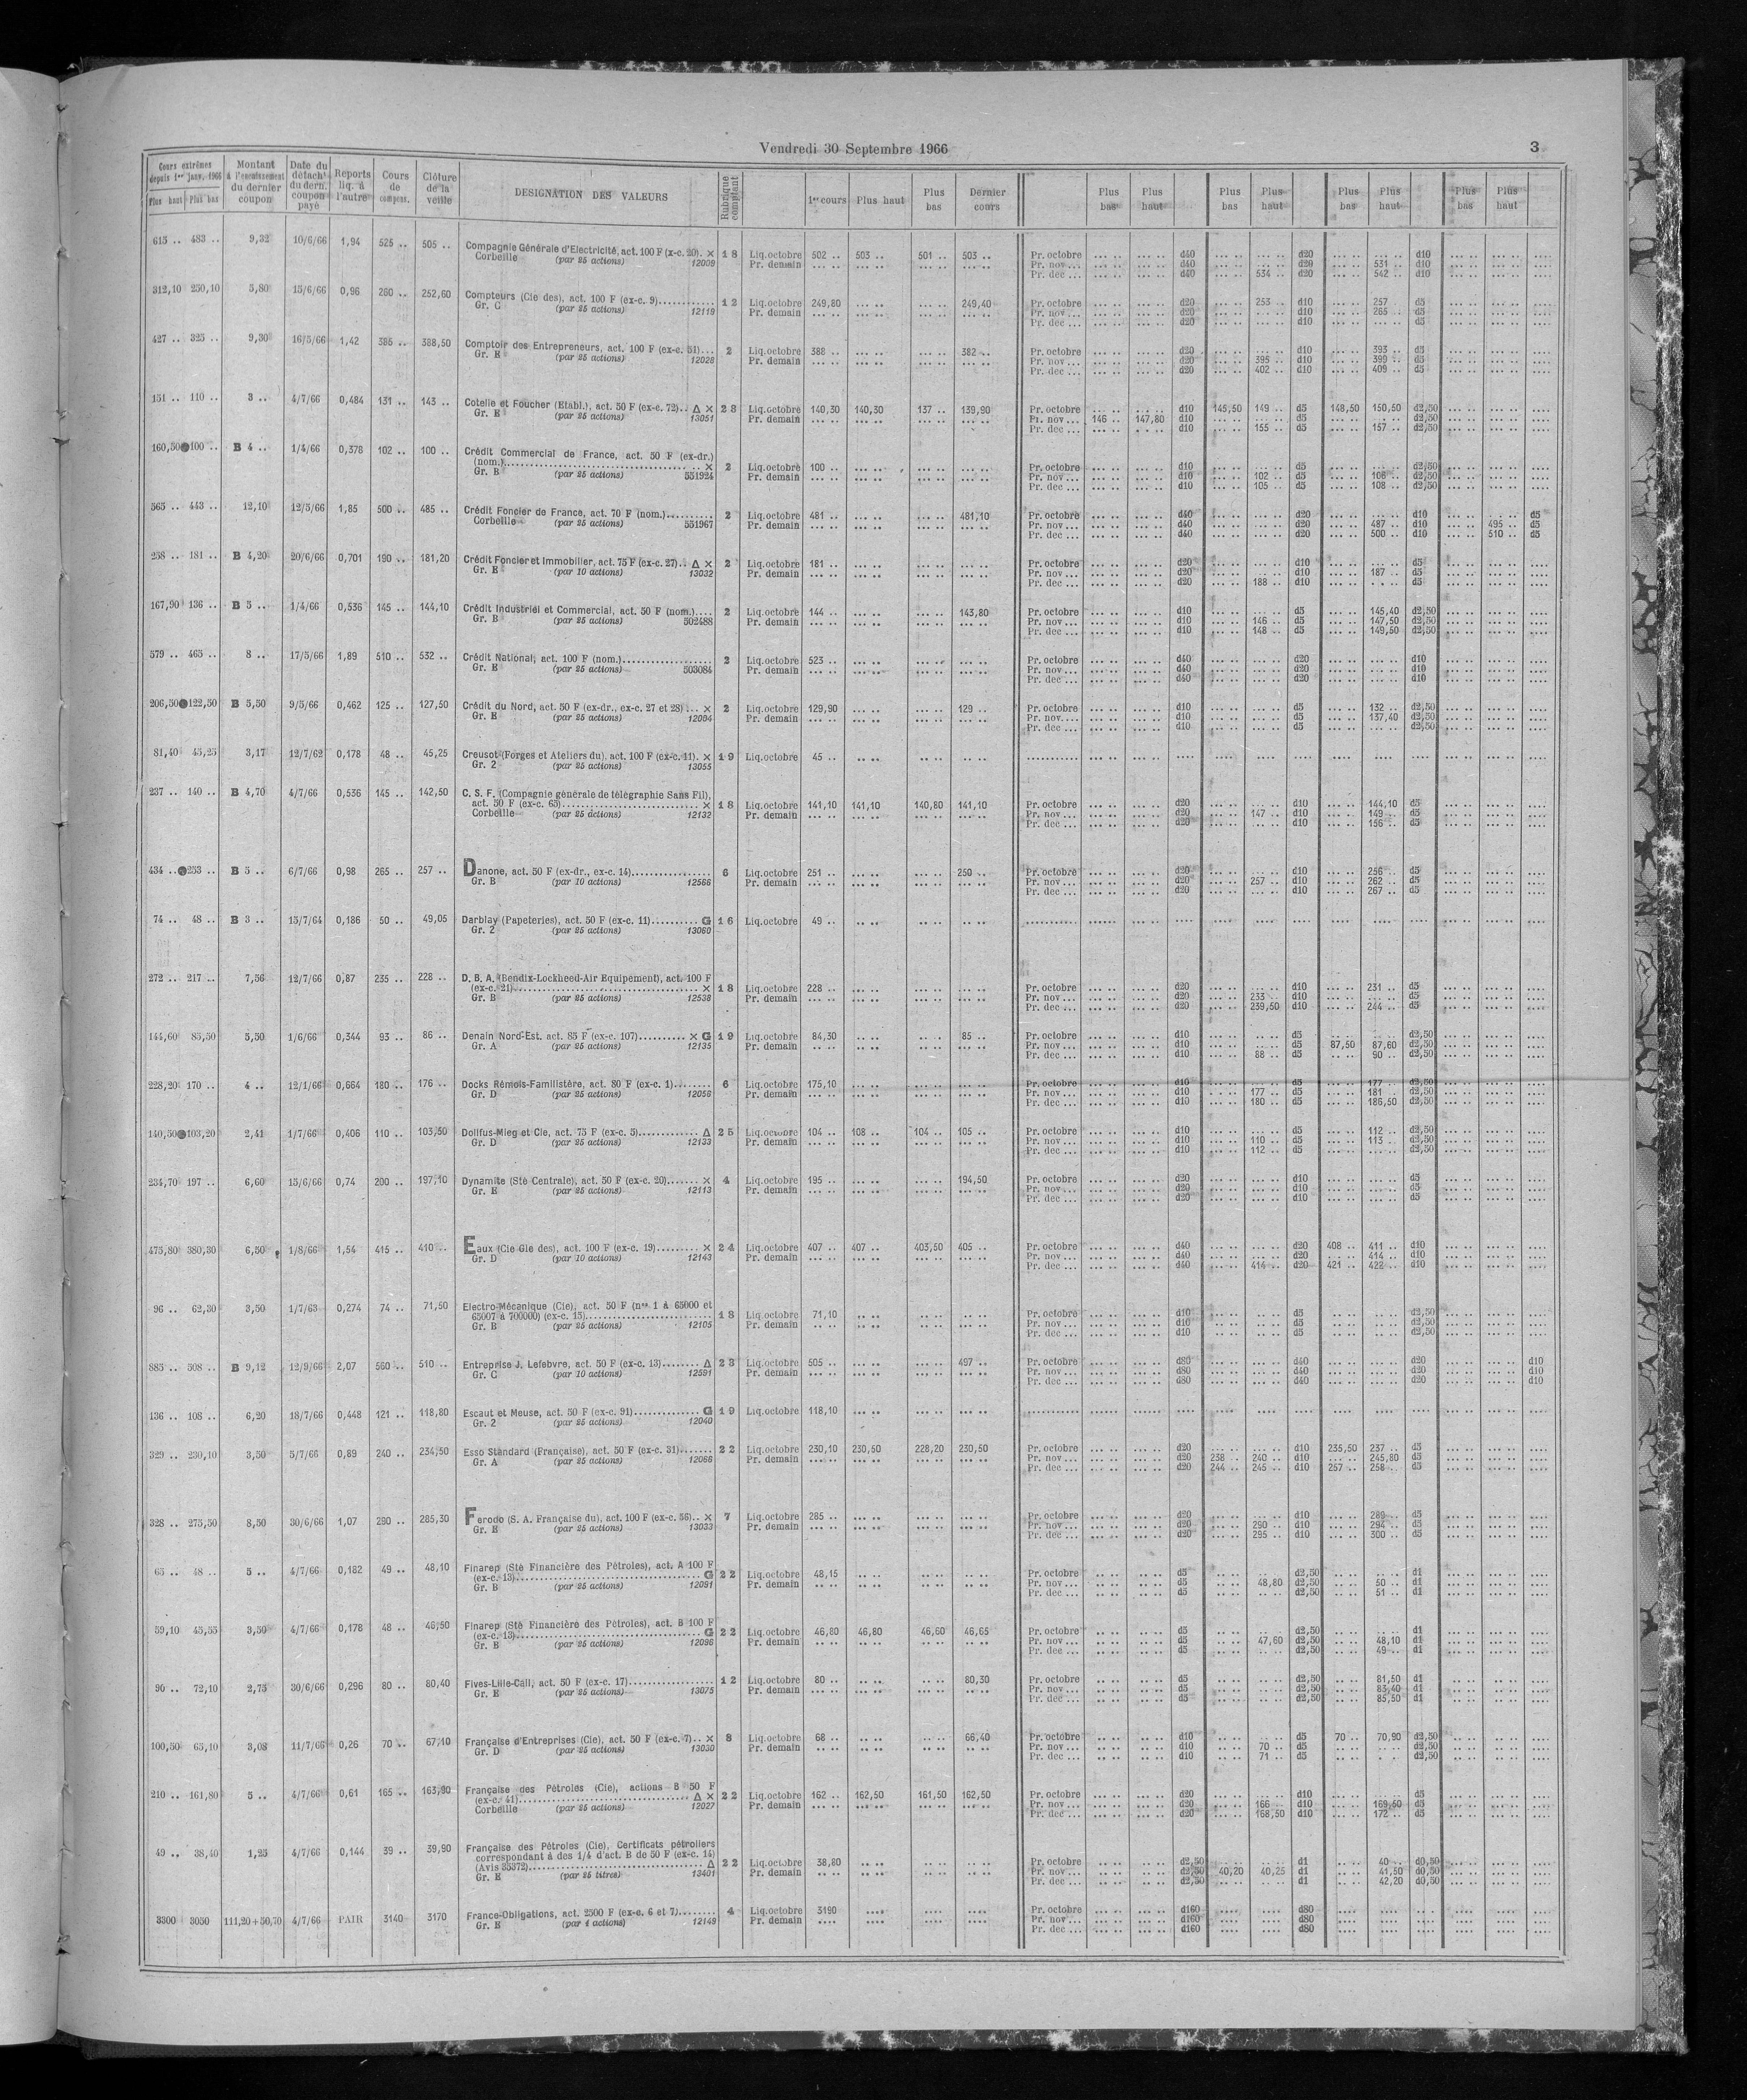 Vendredi 30 Septembre 1966
3
Cours extrêmes depuis 1er janv. 1966 Plus haut Plus bas Montant à l'encaissement du dernier coupon Date du détacht du dern. coupon payé Reports liq. à l'autre Cours de compens. Clôture de la veille DESIGNATION DES VALEURS Rubrique comptant 1er cours Plus haut Plus bas Dernier cours Plus bas Plus haut Plus bas Plus haut Plus bas Plus haut Plus bas Plus haut
615 .. 483 .. 9,32 10/6/66 1,94 525 .. 505 .. Compagnie Générale d'Electricité, act. 100 F (x-c. 20). × 18 Liq.octobre 502 .. 503 .. 501 .. 503 .. Pr. octobre d40 d20 d10
Corbeille (par 25 actions) 12009 Pr. demain Pr. nov ... d40 d20 531 .. d10
Pr. dec ... d40 534 .. d20 542 .. d10
312,10 250,10 5,80 15/6/66 0,96 260 .. 252,60 Compteurs (Cie des), act. 100 F (ex-c. 9) 12 Liq.octobre 249,80 249,40 Pr. octobre d20 253 .. d10 257 .. d5
Gr. C (par 25 actions) 12119 Pr. demain Pr. nov ... d20 d10 265 .. d5
Pr. dec ... d20 d10 d5
427 .. 325 .. 9,30 16/5/66 1,42 385 .. 388,50 Comptoir des Entrepreneurs, act. 100 F (ex-c. 51)... 2 Liq.octobre 388 .. 382 .. Pr. octobre d20 d10 393 .. d5
Gr. E (par 25 actions) 12028 Pr. demain Pr. nov ... d20 395 .. d10 399 .. d5
Pr. dec ... d20 402 .. d10 409 .. d5
151 .. 110 .. 3 .. 4/7/66 0,484 131 .. 143 .. Cotelle et Foucher (Etabl.), act. 50 F (ex-c. 72).. Δ × 28 Liq.octobre 140,30 140,30 137 .. 139,90 Pr. octobre d10 145,50 149 .. d5 148,50 150,50 d2,50
Gr. E (par 25 actions) 13051 Pr. demain Pr. nov ... 146 .. 147,80 d10 d5 d2,50
Pr. dec ... d10 155 .. d5 157 .. d2,50
160,50 ●100 .. B 4 .. 1/4/66 0,378 102 .. 100 .. Crédit Commercial de France, act. 50 F (ex-dr.)
(nom.) × 2 Liq.octobre 100 .. Pr. octobre d10 d5 d2,50
Gr. B (par 25 actions) 551924 Pr. demain Pr. nov ... d10 102 .. d5 106 .. d2,50
Pr. dec ... d10 105 .. d5 108 .. d2,50
565 .. 443 .. 12,10 12/5/66 1,85 500 .. 485 .. Crédit Foncier de France, act. 70 F (nom.) 2 Liq.octobre 481 .. 481,10 Pr. octobre d40 d20 d10 d5
Corbeille (par 25 actions) 551967 Pr. demain Pr. nov ... d40 d20 487 .. d10 495 .. d5
Pr. dec ... d40 d20 500 .. d10 510 .. d5
258 .. 181 .. B 4,20 20/6/66 0,701 190 .. 181,20 Crédit Foncier et Immobilier, act. 75 F (ex-c. 27).. Δ × 2 Liq.octobre 181 .. Pr. octobre d20 d10 d5
Gr. E (par 10 actions) 13032 Pr. demain Pr. nov ... d20 d10 187 .. d5
Pr. dec ... d20 188 .. d10 d5
167,90 136 .. B 5 .. 1/4/66 0,536 145 .. 144,10 Crédit Industriel et Commercial, act. 50 F (nom.).... 2 Liq.octobre 144 .. 143,80 Pr. octobre d10 d5 145,40 d2,50
Gr. B (par 25 actions) 502488 Pr. demain Pr. nov ... d10 146 .. d5 147,50 d2,50
Pr. dec ... d10 148 .. d5 149,50 d2,50
579 .. 465 .. 8 .. 17/5/66 1,89 510 .. 532 .. Crédit National, act. 100 F (nom.) 2 Liq.octobre 523 .. Pr. octobre d40 d20 d10
Gr. E (par 25 actions) 503084 Pr. demain Pr. nov ... d40 d20 d10
Pr. dec ... d40 d20 d10
206,50 ●122,50 B 5,50 9/5/66 0,462 125 .. 127,50 Crédit du Nord, act. 50 F (ex-dr., ex-c. 27 et 28)... × 2 Liq.octobre 129,90 129 .. Pr. octobre d10 d5 132 .. d2,50
Gr. E (par 25 actions) 12094 Pr. demain Pr. nov ... d10 d5 137,40 d2,50
Pr. dec ... d10 d5 d2,50
81,40 45,25 3,17 12/7/62 0,178 48 .. 45,25 Creusot (Forges et Ateliers du), act. 100 F (ex-c. 11). × 19 Liq.octobre 45 ..
Gr. 2 (par 25 actions) 13055
237 .. 140 .. B 4,70 4/7/66 0,536 145 .. 142,50 C. S. F. (Compagnie générale de télégraphie Sans Fil),
act. 50 F (ex-c. 65) × 18 Liq.octobre 141,10 141,10 140,80 141,10 Pr. octobre d20 d10 144,10 d5
Corbeille (par 25 actions) 12132 Pr. demain Pr. nov ... d20 147 .. d10 149 .. d5
Pr. dec ... d20 d10 156 .. d5
434 .. ●253 .. B 5 .. 6/7/66 0,98 265 .. 257 .. Danone, act. 50 F (ex-dr., ex-c. 14) 6 Liq.octobre 251 .. 250 .. Pr. octobre d20 d10 256 .. d5
Gr. B (par 10 actions) 12566 Pr. demain Pr. nov ... d20 257 .. d10 262 .. d5
Pr. dec ... d20 d10 267 .. d5
74 .. 48 .. B 3 .. 15/7/64 0,186 50 .. 49,05 Darblay (Papeteries), act. 50 F (ex-c. 11) G 16 Liq.octobre 49 ..
Gr. 2 (par 25 actions) 13060
272 .. 217 .. 7,56 12/7/66 0,87 235 .. 228 .. D. B. A. (Bendix-Lockheed-Air Equipement), act. 100 F
(ex-c. 21) × 18 Liq.octobre 228 .. Pr. octobre d20 d10 231 .. d5
Gr. B (par 25 actions) 12538 Pr. demain Pr. nov ... d20 233 .. d10 d5
Pr. dec ... d20 239,50 d10 244 .. d5
144,60 85,50 5,50 1/6/66 0,344 93 .. 86 .. Denain Nord-Est, act. 85 F (ex-c. 107) × G 19 Liq.octobre 84,30 85 .. Pr. octobre d10 d5 d2,50
Gr. A (par 25 actions) 12135 Pr. demain Pr. nov ... d10 d5 87,50 87,60 d2,50
Pr. dec ... d10 88 .. d5 90 .. d2,50
228,20 170 .. 4 .. 12/1/66 0,664 180 .. 176 .. Docks Rémois-Familistère, act. 80 F (ex-c. 1) 6 Liq.octobre 175,10 Pr. octobre d10 d5 177 .. d2,50
Gr. D (par 25 actions) 12056 Pr. demain Pr. nov ... d10 177 .. d5 181 .. d2,50
Pr. dec ... d10 180 .. d5 186,50 d2,50
140,50 ●103,20 2,41 1/7/66 0,406 110 .. 103,50 Dollfus-Mieg et Cie, act. 75 F (ex-c. 5) Δ 25 Liq.octobre 104 .. 108 .. 104 .. 105 .. Pr. octobre d10 d5 112 .. d2,50
Gr. D (par 25 actions) 12133 Pr. demain Pr. nov ... d10 110 .. d5 113 .. d2,50
Pr. dec ... d10 112 .. d5 d2,50
234,70 197 .. 6,60 15/6/66 0,74 200 .. 197,10 Dynamite (Sté Centrale), act. 50 F (ex-c. 20) × 4 Liq.octobre 195 .. 194,50 Pr. octobre d20 d10 d5
Gr. E (par 25 actions) 12113 Pr. demain Pr. nov ... d20 d10 d5
Pr. dec ... d20 d10 d5
475,80 380,30 6,50 1/8/66 1,54 415 .. 410 .. Eaux (Cie Gle des), act. 100 F (ex-c. 19) × 24 Liq.octobre 407 .. 407 .. 403,50 405 .. Pr. octobre d40 d20 408 .. 411 .. d10
Gr. D (par 10 actions) 12143 Pr. demain Pr. nov ... d40 d20 414 .. d10
Pr. dec ... d40 414 .. d20 421 .. 422 .. d10
96 .. 62,30 3,50 1/7/63 0,274 74 .. 71,50 Electro-Mécanique (Cie), act. 50 F (nos 1 à 65000 et
65007 à 700000) (ex-c. 15) 18 Liq.octobre 71,10 Pr. octobre d10 d5 d2,50
Gr. B (par 25 actions) 12105 Pr. demain Pr. nov ... d10 d5 d2,50
Pr. dec ... d10 d5 d2,50
885 .. 508 .. B 9,12 12/9/66 2,07 560 .. 510 .. Entreprise J. Lefebvre, act. 50 F (ex-c. 13) Δ 23 Liq.octobre 505 .. 497 .. Pr. octobre d80 d40 d20 d10
Gr. C (par 10 actions) 12591 Pr. demain Pr. nov ... d80 d40 d20 d10
Pr. dec ... d80 d40 d20 d10
136 .. 108 .. 6,20 18/7/66 0,448 121 .. 118,80 Escaut et Meuse, act. 50 F (ex-c. 91) G 19 Liq.octobre 118,10
Gr. 2 (par 25 actions) 12040
329 .. 230,10 3,50 5/7/66 0,89 240 .. 234,50 Esso Standard (Française), act. 50 F (ex-c. 31) 22 Liq.octobre 230,10 230,50 228,20 230,50 Pr. octobre d20 d10 235,50 237 .. d5
Gr. A (par 25 actions) 12068 Pr. demain Pr. nov ... d20 238 .. 240 .. d10 245,80 d5
Pr. dec ... d20 244 .. 245 .. d10 257 .. 258 .. d5
328 .. 275,50 8,50 30/6/66 1,07 290 .. 285,30 Ferodo (S. A. Française du), act. 100 F (ex-c. 56).. × 7 Liq.octobre 285 .. Pr. octobre d20 d10 289 .. d5
Gr. E (par 25 actions) 13033 Pr. demain Pr. nov ... d20 290 .. d10 294 .. d5
Pr. dec ... d20 295 .. d10 300 .. d5
65 .. 48 .. 5 .. 4/7/66 0,182 49 .. 48,10 Finarep (Sté Financière des Pétroles), act. A 100 F
(ex-c. 13) G 22 Liq.octobre 48,15 Pr. octobre d5 d2,50 d1
Gr. B (par 25 actions) 12091 Pr. demain Pr. nov ... d5 48,80 d2,50 50 .. d1
Pr. dec ... d5 d2,50 51 .. d1
59,10 45,55 3,50 4/7/66 0,178 48 .. 46,50 Finarep (Sté Financière des Pétroles), act. B 100 F
(ex-c. 13) G 22 Liq.octobre 46,80 46,80 46,60 46,65 Pr. octobre d5 d2,50 d1
Gr. B (par 25 actions) 12096 Pr. demain Pr. nov ... d5 47,60 d2,50 48,10 d1
Pr. dec ... d5 d2,50 49 .. d1
90 .. 72,10 2,75 30/6/66 0,296 80 .. 80,40 Fives-Lille-Cail, act. 50 F (ex-c. 17) 12 Liq.octobre 80 .. 80,30 Pr. octobre d5 d2,50 81,50 d1
Gr. E (par 25 actions) 13075 Pr. demain Pr. nov ... d5 d2,50 83,40 d1
Pr. dec ... d5 d2,50 85,50 d1
100,50 65,10 3,08 11/7/66 0,26 70 .. 67,10 Française d'Entreprises (Cie), act. 50 F (ex-c. 7).. × 8 Liq.octobre 68 .. 66,40 Pr. octobre d10 d5 70 .. 70,90 d2,50
Gr. D (par 25 actions) 13030 Pr. demain Pr. nov ... d10 70 .. d5 d2,50
Pr. dec ... d10 71 .. d5 d2,50
210 .. 161,80 5 .. 4/7/66 0,61 165 .. 163,90 Française des Pétroles (Cie), actions B 50 F
(ex-c. 41) Δ × 22 Liq.octobre 162 .. 162,50 161,50 162,50 Pr. octobre d20 d10 d5
Corbeille (par 25 actions) 12027 Pr. demain Pr. nov ... d20 166 .. d10 169,50 d5
Pr. dec ... d20 168,50 d10 172 .. d5
49 .. 38,40 1,25 4/7/66 0,144 39 .. 39,90 Française des Pétroles (Cie), Certificats pétroliers
correspondant à des 1/4 d'act. B de 50 F (ex-c. 14)
(Avis 35372) Δ 22 Liq.octobre 38,80 Pr. octobre d2,50 d1 40 .. d0,50
Gr. E (par 25 titres) 13401 Pr. demain Pr. nov ... d2,50 40,20 40,25 d1 41,50 d0,50
Pr. dec ... d2,50 d1 42,20 d0,50
3300 3050 111,20+50,70 4/7/66 PAIR 3140 3170 France-Obligations, act. 2500 F (ex-c. 6 et 7) 4 Liq.octobre 3190 Pr. octobre d160 d80
Gr. E (par 1 actions) 12149 Pr. demain Pr. nov ... d160 d80
Pr. dec ... d160 d80